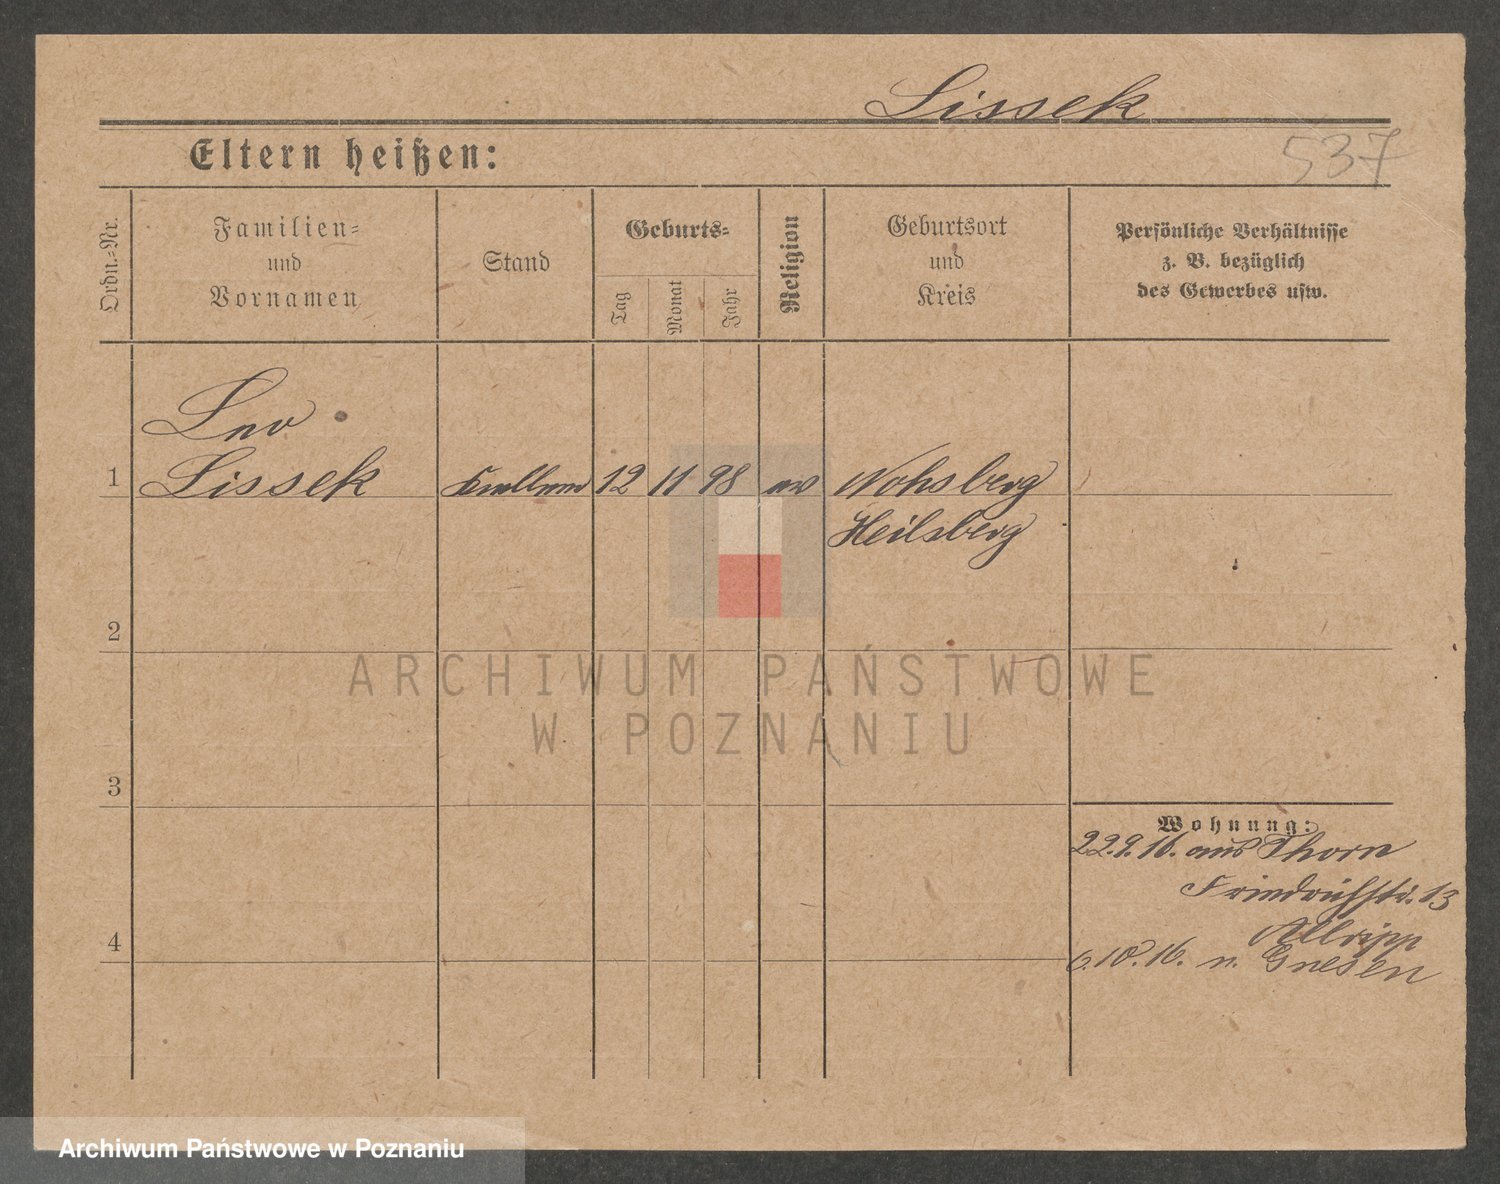 Lissek
537
Eltern heißen:
Ordn.-Nr.
Familien-
und
Vornamen
Stand
Geburts-
Tag
Monat
Jahr
Religion
Geburtsort
und
Kreis
Persönliche Verhältnisse
z. B. bezüglich
des Gewerbes usw.
Leo
1 Lissek 12 11 98 ev Wohsberg
Heilsberg
2
3
4
Wohnung:
22.9.16. aus Thorn
Friedrichstr. 13
6.10.16. n. Gnesen
ARCHIWUM PAŃSTWOWE
W POZNANIU
Archiwum Państwowe w Poznaniu